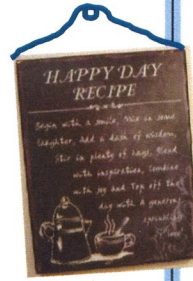 HAPPY DAY
RECIPE
Begin with a smile, Mix in some
laughter, Add a dash of wisdom,
Stir in plenty of hugs, Blend
with inspiration, Combine
with joy and Top off the
day with a generous
sprinkle